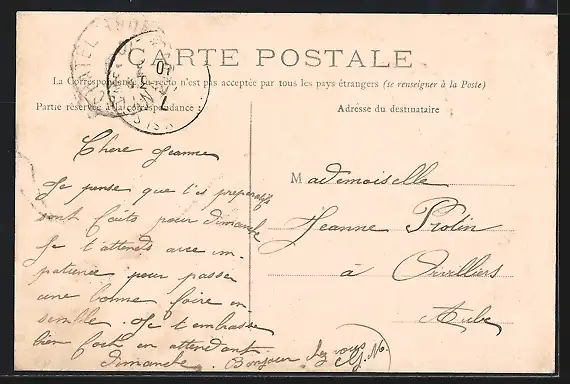 CARTE POSTALE
La Correspondance au recto n'est pas acceptée par tous les pays étrangers (se renseigner à la Poste)
Partie réservée à la correspondance
Adresse du destinataire
Chere Jeanne
Je pense que tes preparatifs
sont faits pour dimanche
Je t'attends avec im-
patience pour passer
une bonne foire en-
semble. Je t'embrasse
bien fort en attendant
dimanche. Bonjour chez vous
Mademoiselle
Jeanne
à Orvilliers
Aube